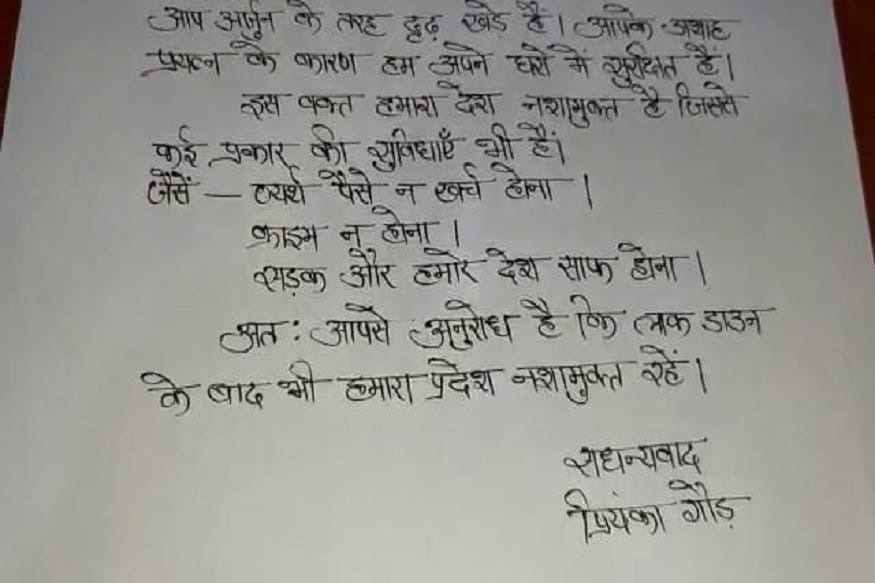 आप अर्जुन के तरह दृढ़ खड़े हैं। आपके अथाह
प्रयत्न के कारण हम अपने घरों में सुरक्षित हैं।
इस वक्त हमारा देश नशामुक्त है जिससे
कई प्रकार की सुविधाएँ भी हैं।
जैसे — व्यर्थ पैसे न खर्च होना।
क्राइम न होना।
सड़क और हमारे देश साफ होना।
अत: आपसे अनुरोध है कि लाक डाउन
के बाद भी हमारा प्रदेश नशामुक्त रहें।
सधन्यवाद
प्रियंका गौड़